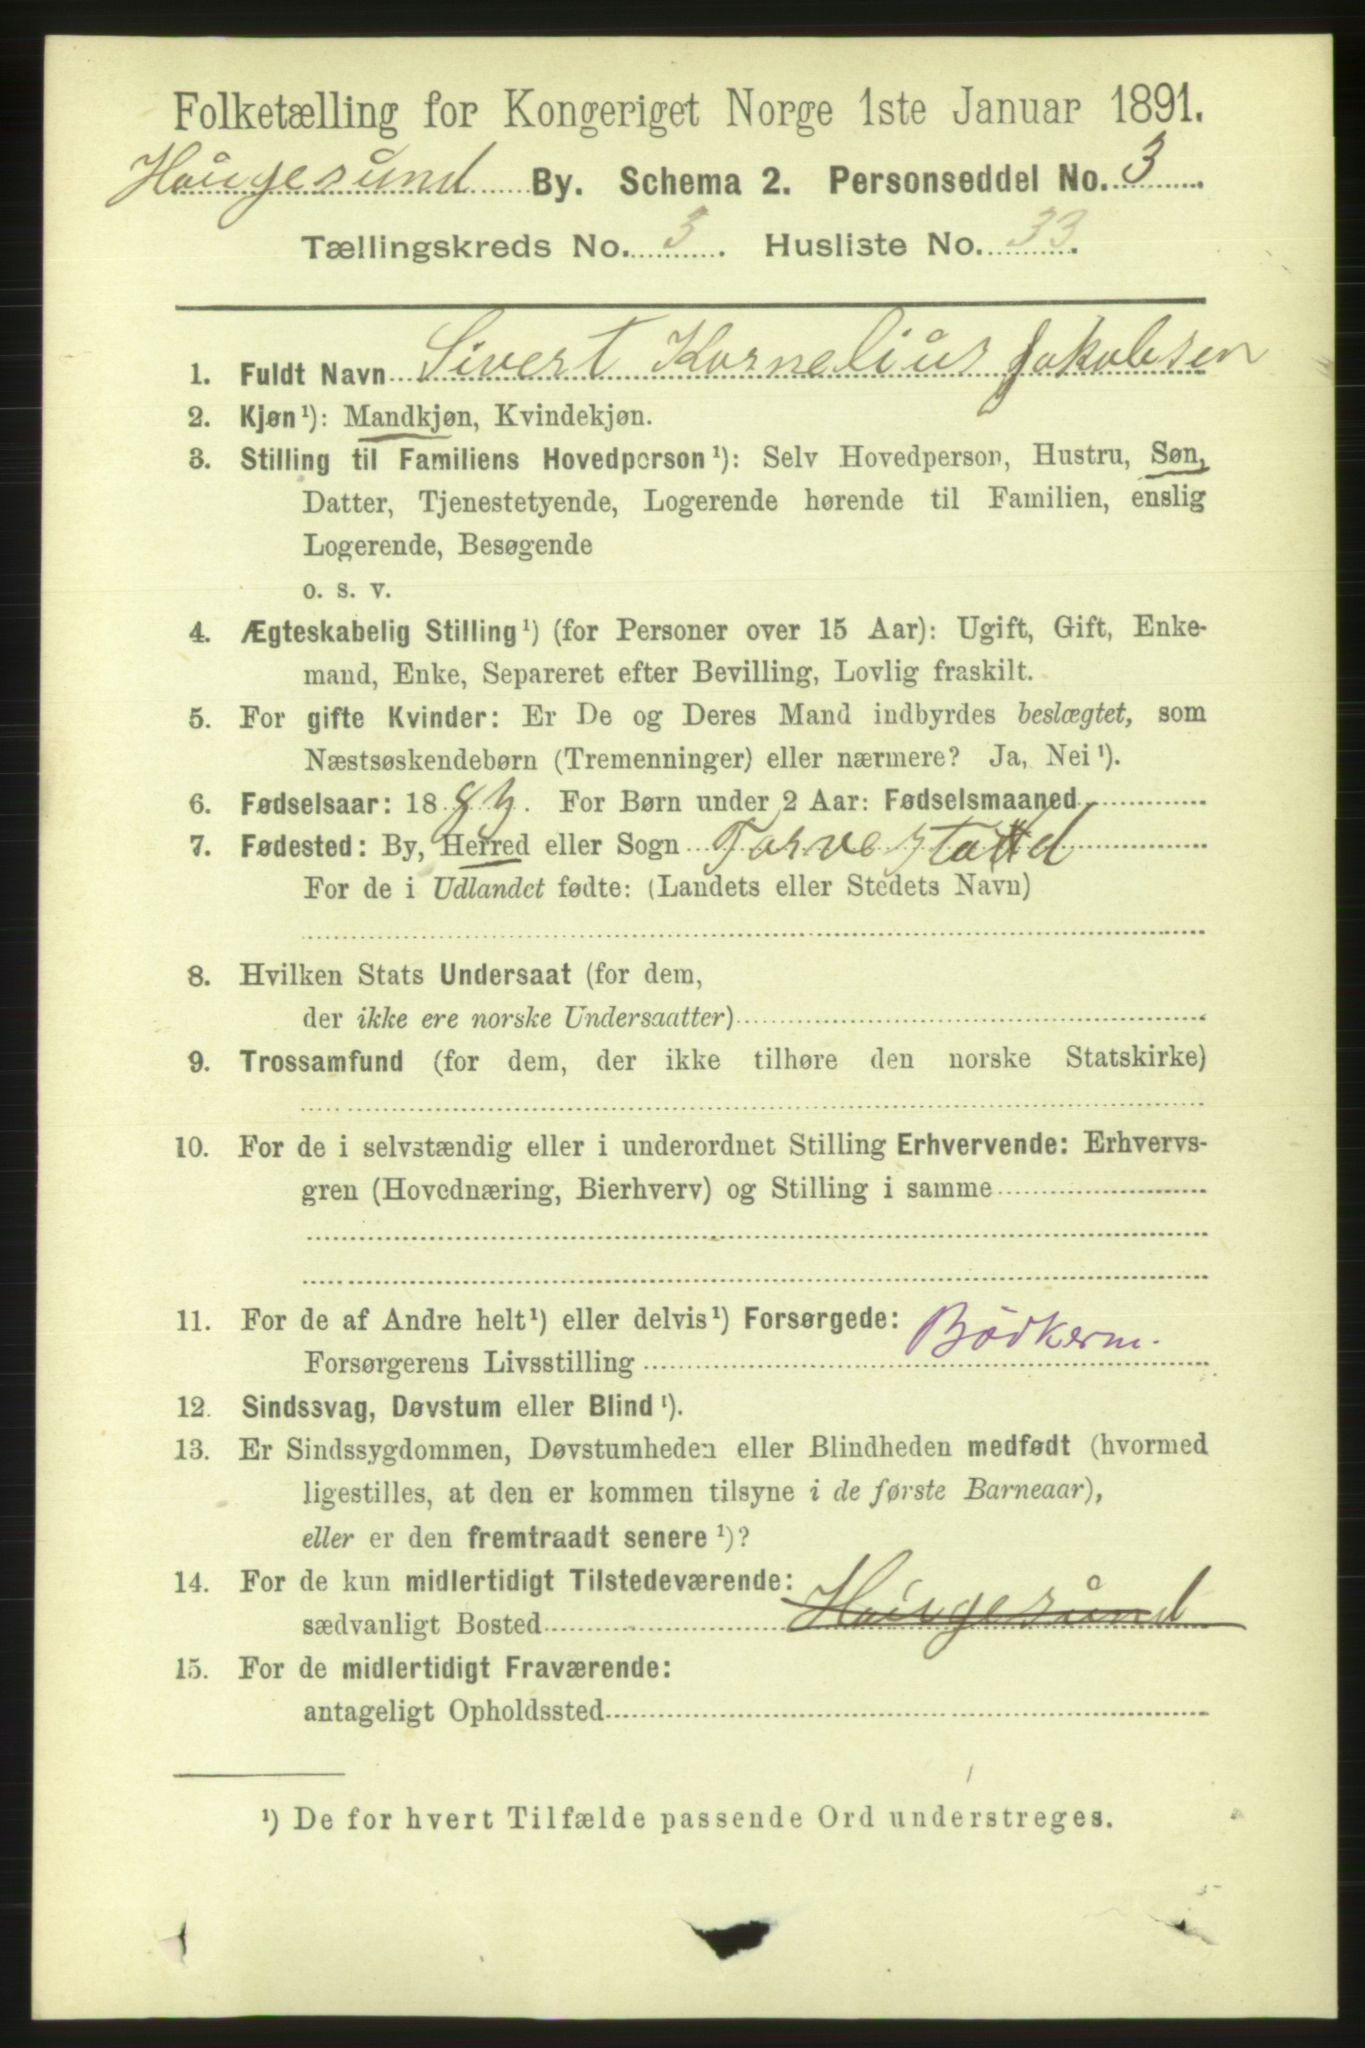 Folketælling for Kongeriget Norge 1ste Januar 1891.
Haugesund By. Schema 2. Personseddel No. 3.
Tællingskreds No. 3. Husliste No. 33.
1. Fuldt Navn Sivert Kornelius Jakobsen
2. Kjøn¹): Mandkjøn, Kvindekjøn.
3. Stilling til Familiens Hovedperson¹): Selv Hovedperson, Hustru, Søn,
Datter, Tjenestetyende, Logerende hørende til Familien, enslig
Logerende, Besøgende
o. s. v.
4. Ægteskabelig Stilling¹) (for Personer over 15 Aar): Ugift, Gift, Enke-
mand, Enke, Separeret efter Bevilling, Lovlig fraskilt.
5. For gifte Kvinder: Er De og Deres Mand indbyrdes beslægtet, som
Næstsøskendebørn (Tremenninger) eller nærmere? Ja, Nei¹).
6. Fødselsaar: 18 . For Børn under 2 Aar: Fødselsmaaned
7. Fødested: By, Herred eller Sogn Torvestad
For de i Udlandet fødte: (Landets eller Stedets Navn)
8. Hvilken Stats Undersaat (for dem,
der ikke ere norske Undersaatter)
9. Trossamfund (for dem, der ikke tilhøre den norske Statskirke)
10. For de i selvstændig eller i underordnet Stilling Erhvervende: Erhvervs-
gren (Hovednæring, Bierhverv) og Stilling i samme
11. For de af Andre helt¹) eller delvis¹) Forsørgede:
Forsørgerens Livsstilling Bödkerm.
12. Sindssvag, Døvstum eller Blind¹).
13. Er Sindssygdommen, Døvstumheden eller Blindheden medfødt (hvormed
ligestilles, at den er kommen tilsyne i de første Barneaar),
eller er den fremtraadt senere¹)?
14. For de kun midlertidigt Tilstedeværende:
sædvanligt Bosted Haugesund
15. For de midlertidigt Fraværende:
antageligt Opholdssted
¹) De for hvert Tilfælde passende Ord understreges.